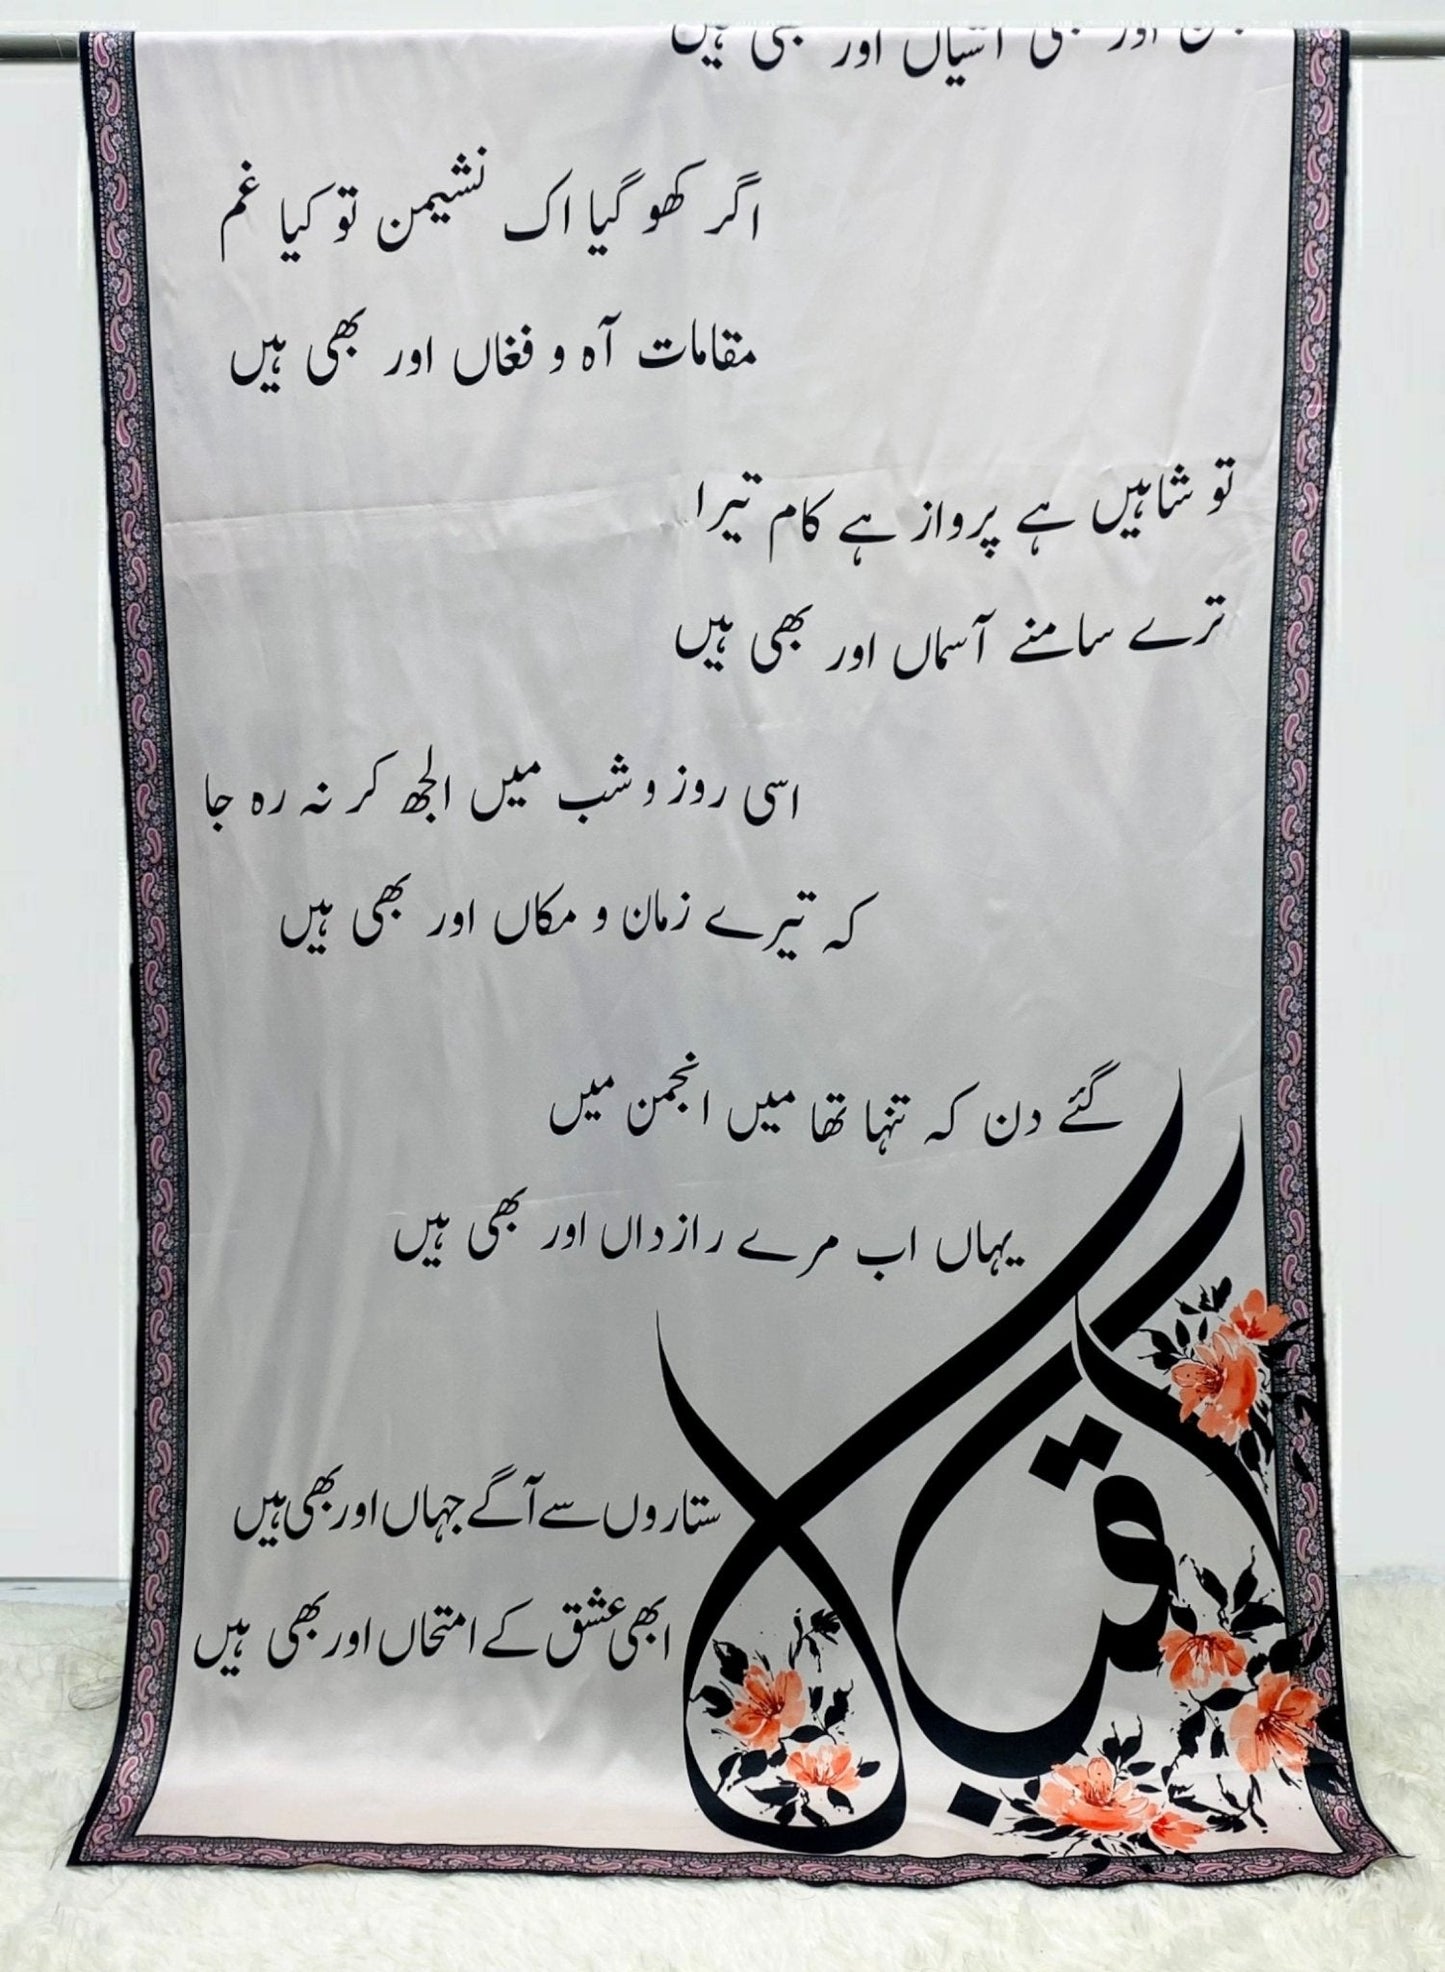 اور بھی آشیاں اور بھی ہیں
اگر کھو گیا اک نشیمن تو کیا غم
مقامات آہ و فغاں اور بھی ہیں
تو شاہیں ہے پرواز ہے کام تیرا
ترے سامنے آسماں اور بھی ہیں
اسی روز و شب میں الجھ کر نہ رہ جا
کہ تیرے زمان و مکاں اور بھی ہیں
گئے دن کہ تنہا تھا میں انجمن میں
یہاں اب مرے رازداں اور بھی ہیں
ستاروں سے آگے جہاں اور بھی ہیں
ابھی عشق کے امتحاں اور بھی ہیں
اقبال